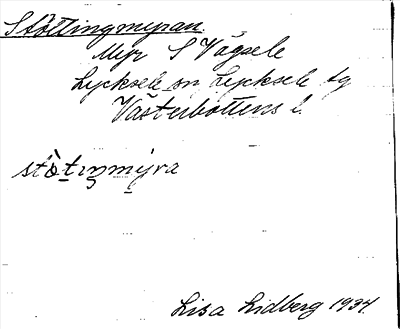 Stöttingmyran.
Myr S Vägsele
Lycksele sn Lycksele tg
Västerbottens l.
stò̱tiŋmýra
Lisa Lidberg 1934.